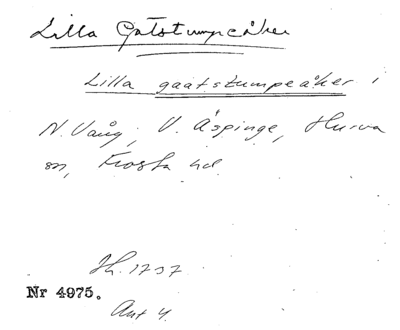 Lilla Gatstumpeåker
Lilla gaatstumpeåker i
N. Vång, V. Äspinge, Hurva
sn, Frosta hd.
Jh. 1737
Nr 4975.
Akt 4.